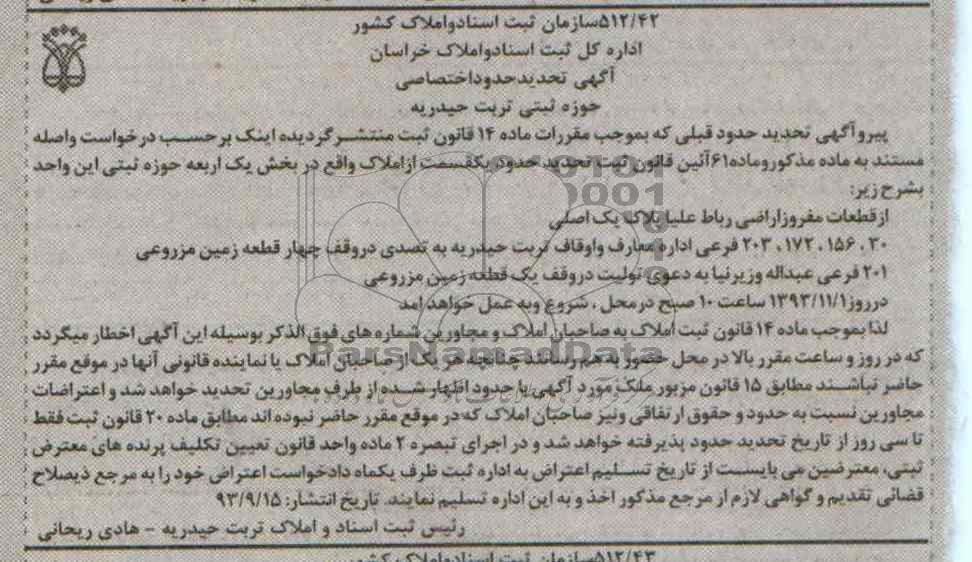 ۵۱۲/۴۲سازمان ثبت اسنادواملاک کشور
اداره کل ثبت اسنادواملاک خراسان
آگهی تحدیدحدوداختصاصی
حوزه ثبتی تربت حیدریه
پیروآگهی تحدید حدود قبلی که بموجب مقررات ماده ۱۴ قانون ثبت منتشرگردیده اینک برحسب درخواست واصله
مستند به ماده مذکوروماده۶۱آئین قانون ثبت تحدید حدود یکقسمت ازاملاک واقع در بخش یک اربعه حوزه ثبتی این واحد
بشرح زیر:
ازقطعات مفروزاراضی رباط علیا پلاک یک اصلی
۳۰ ، ۱۵۶ ، ۱۷۲ ، ۲۰۳ فرعی اداره معارف واوقاف تربت حیدریه به تصدی دروقف چهار قطعه زمین مزروعی
۲۰۱ فرعی عبداله وزیرنیا به دعوی تولیت دروقف یک قطعه زمین مزروعی
درروز۱۳۹۳/۱۱/۱ ساعت ۱۰ صبح درمحل ، شروع وبه عمل خواهد آمد
لذا بموجب ماده ۱۴ قانون ثبت املاک به صاحبان املاک و مجاورین شماره های فوق الذکر بوسیله این آگهی اخطار میگردد
که در روز و ساعت مقرر بالا در محل حضور به هم رسانند چنانچه هر یک از صاحبان املاک یا نماینده قانونی آنها در موقع مقرر
حاضر نباشند مطابق ۱۵ قانون مزبور ملک مورد آگهی با حدود اظهار شده از طرف مجاورین تحدید خواهد شد و اعتراضات
مجاورین نسبت به حدود و حقوق ارتفاقی ونیز صاحبان املاک که در موقع مقرر حاضر نبوده اند مطابق ماده ۲۰ قانون ثبت فقط
تا سی روز از تاریخ تحدید حدود پذیرفته خواهد شد و در اجرای تبصره ۲ ماده واحد قانون تعیین تکلیف پرنده های معترض
ثبتی، معترضین می بایست از تاریخ تسلیم اعتراض به اداره ثبت ظرف یکماه دادخواست اعتراض خود را به مرجع ذیصلاح
قضائی تقدیم و گواهی لازم از مرجع مذکور اخذ و به این اداره تسلیم نمایند. تاریخ انتشار: ۹۳/۹/۱۵
رئیس ثبت اسناد و املاک تربت حیدریه - هادی ریحانی
۵۱۲/۴۳سازمان ثبت اسنادواملاک کشور
ParsNamadData